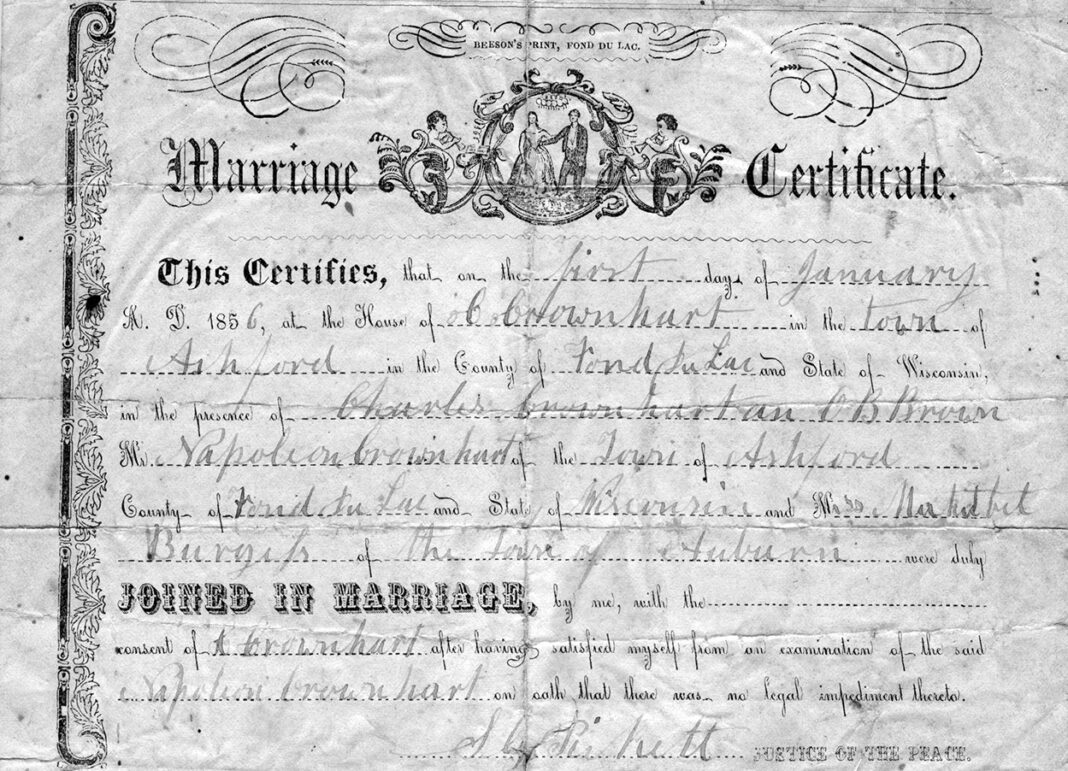 BEESON'S PRINT, FOND DU LAC.
Marriage Certificate.
This Certifies, that on the first day of January
A. D. 1856, at the House of C Crownhart in the Town of
Ashford in the County of Fond du Lac and State of Wisconsin,
in the presence of Charles Crownhart an O B Brown
Mr Napoleon Crownhart of the Town of Ashford
County of Fond du Lac and State of Wisconsin and Miss
Burgess of the Town of Auburn were duly
JOINED IN MARRIAGE, by me, with the
consent of Crownhart after having satisfied myself from an examination of the said
Napoleon Crownhart on oath that there was no legal impediment thereto.
JUSTICE OF THE PEACE.